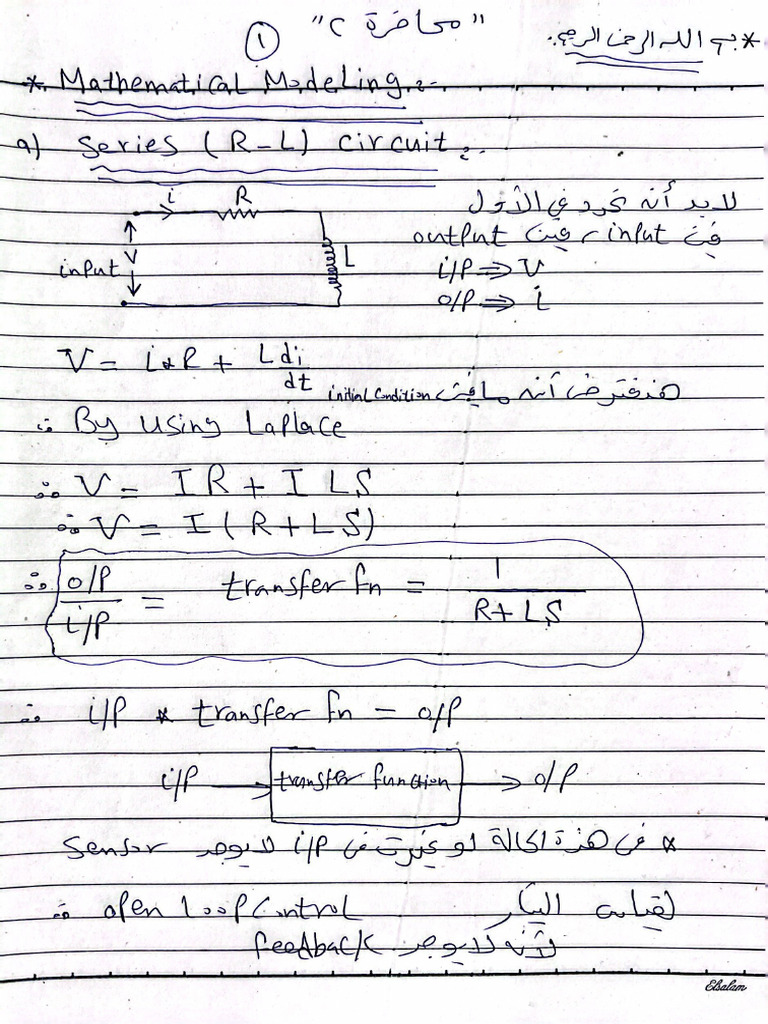 * بسم الله الرحمن الرحيم.
"محاضرة ٢"
①
* Mathematical Modeling :-
a) Series (R-L) circuit :-
i R
input V L
لابد أنه نحدد في الأول
فين input ، فين output
i/P ⇒ V
o/P ⇒ i
V = i * R + L di/dt
هنفترض أنه مافيش initial condition
∴ By using Laplace
∴ V = I R + I L S
∴ V = I ( R + L S )
∴ o/P / i/P = transfer fn = 1 / R + L S
∴ i/P * transfer fn = o/P
i/P → transfer function → o/P
* في هذه الحالة لو غيرت في i/P لا يوجد Sensor
لقياس التيار
∴ open loop control
لأنه لا يوجد feedback
Elsalam